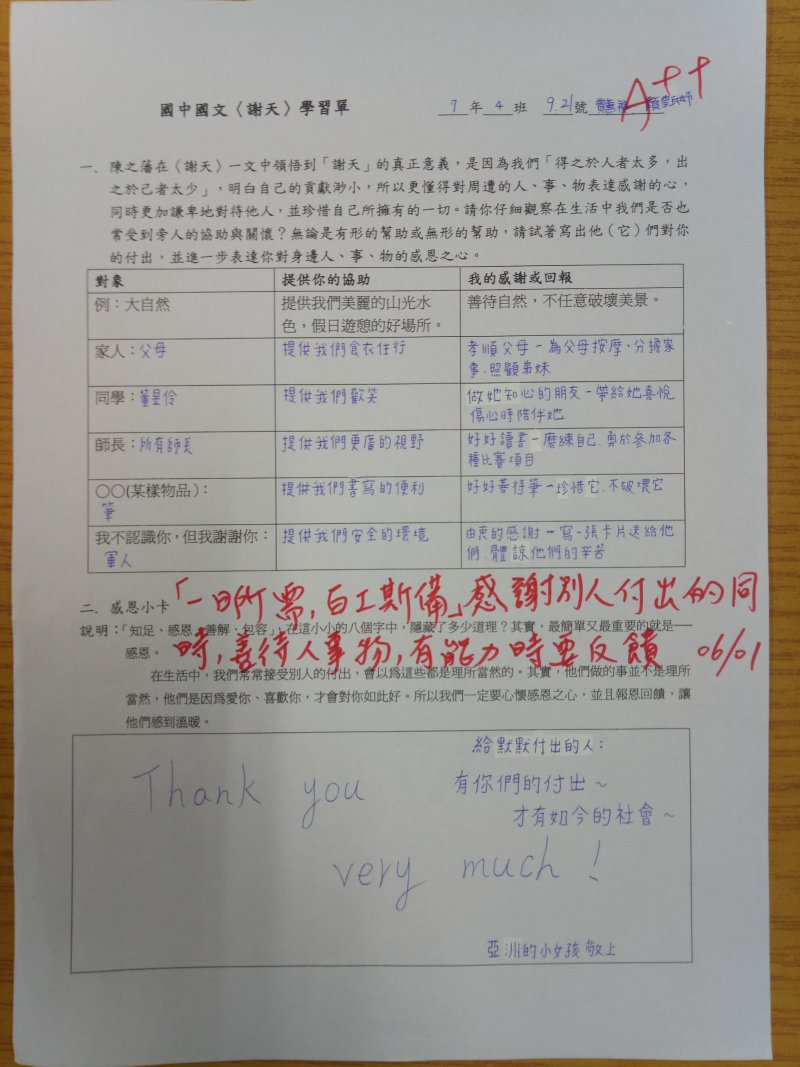 國中國文〈謝天〉學習單 7 年 4 班 9.21 號
A++
一. 陳之藩在〈謝天〉一文中領悟到「謝天」的真正意義，是因為我們「得之於人者太多，出
之於己者太少」，明白自己的貢獻渺小，所以更懂得對周遭的人、事、物表達感謝的心，
同時更加謙卑地對待他人，並珍惜自己所擁有的一切。請你仔細觀察在生活中我們是否也
常受到旁人的協助與關懷？無論是有形的幫助或無形的幫助，請試著寫出他（它）們對你
的付出，並進一步表達你對身邊人、事、物的感恩之心。
對象 提供你的協助 我的感謝或回報
例：大自然 提供我們美麗的山光水 善待自然，不任意破壞美景。
色，假日遊憩的好場所。
家人：父母 提供我們食衣住行 孝順父母－為父母按摩、分擔家
事、照顧弟妹
同學：董昱伶 提供我們歡笑 做她知心的朋友－帶給她喜悅
傷心時陪伴她
師長：所有師長 提供我們更廣的視野 好好讀書－磨練自己、勇於參加各
種比賽項目
○○(某樣物品)： 提供我們書寫的便利 好好善待筆－珍惜它、不破壞它
筆
我不認識你，但我謝謝你： 提供我們安全的環境 由衷的感謝－寫一張卡片送給他
軍人 們、體諒他們的辛苦
「一日所需，百工斯備」感謝別人付出的同
時，善待人事物，有能力時要反饋 06/01
二. 感恩小卡
說明：「知足、感恩、善解、包容」，在這小小的八個字中，隱藏了多少道理？其實，最簡單又最重要的就是──
感恩。
在生活中，我們常常接受別人的付出，會以為這些都是理所當然的。其實，他們做的事並不是理所
當然，他們是因為愛你、喜歡你，才會對你如此好。所以我們一定要心懷感恩之心，並且報恩回饋，讓
他們感到溫暖。
給默默付出的人：
Thank you
有你們的付出～
才有如今的社會～
very much !
亞洲的小女孩 敬上